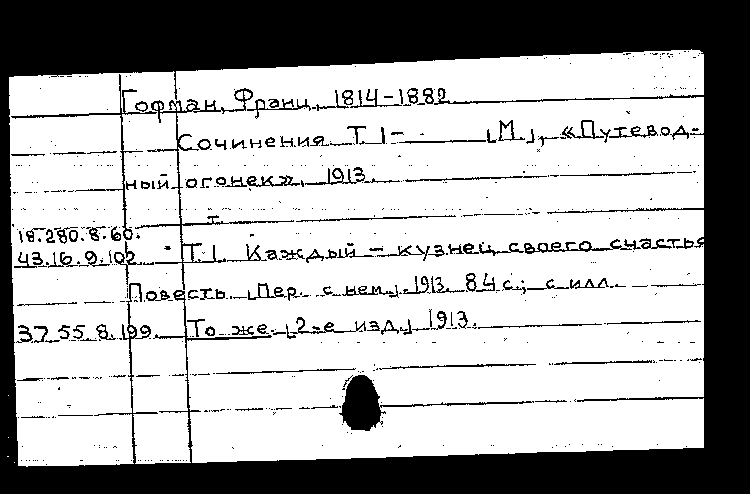 Гофман, Франц, 1814-1882
Сочинения. Т. 1- [М.], «Путевод-
ный огонек», 1913.
18.280.8.60.
43.16.9.102 Т.1. Каждый - кузнец своего счастья
Повесть. [Пер. с нем.]. 1913. 84 с.; с илл.
37.55.8.199. То же. [2-е изд.] 1913.